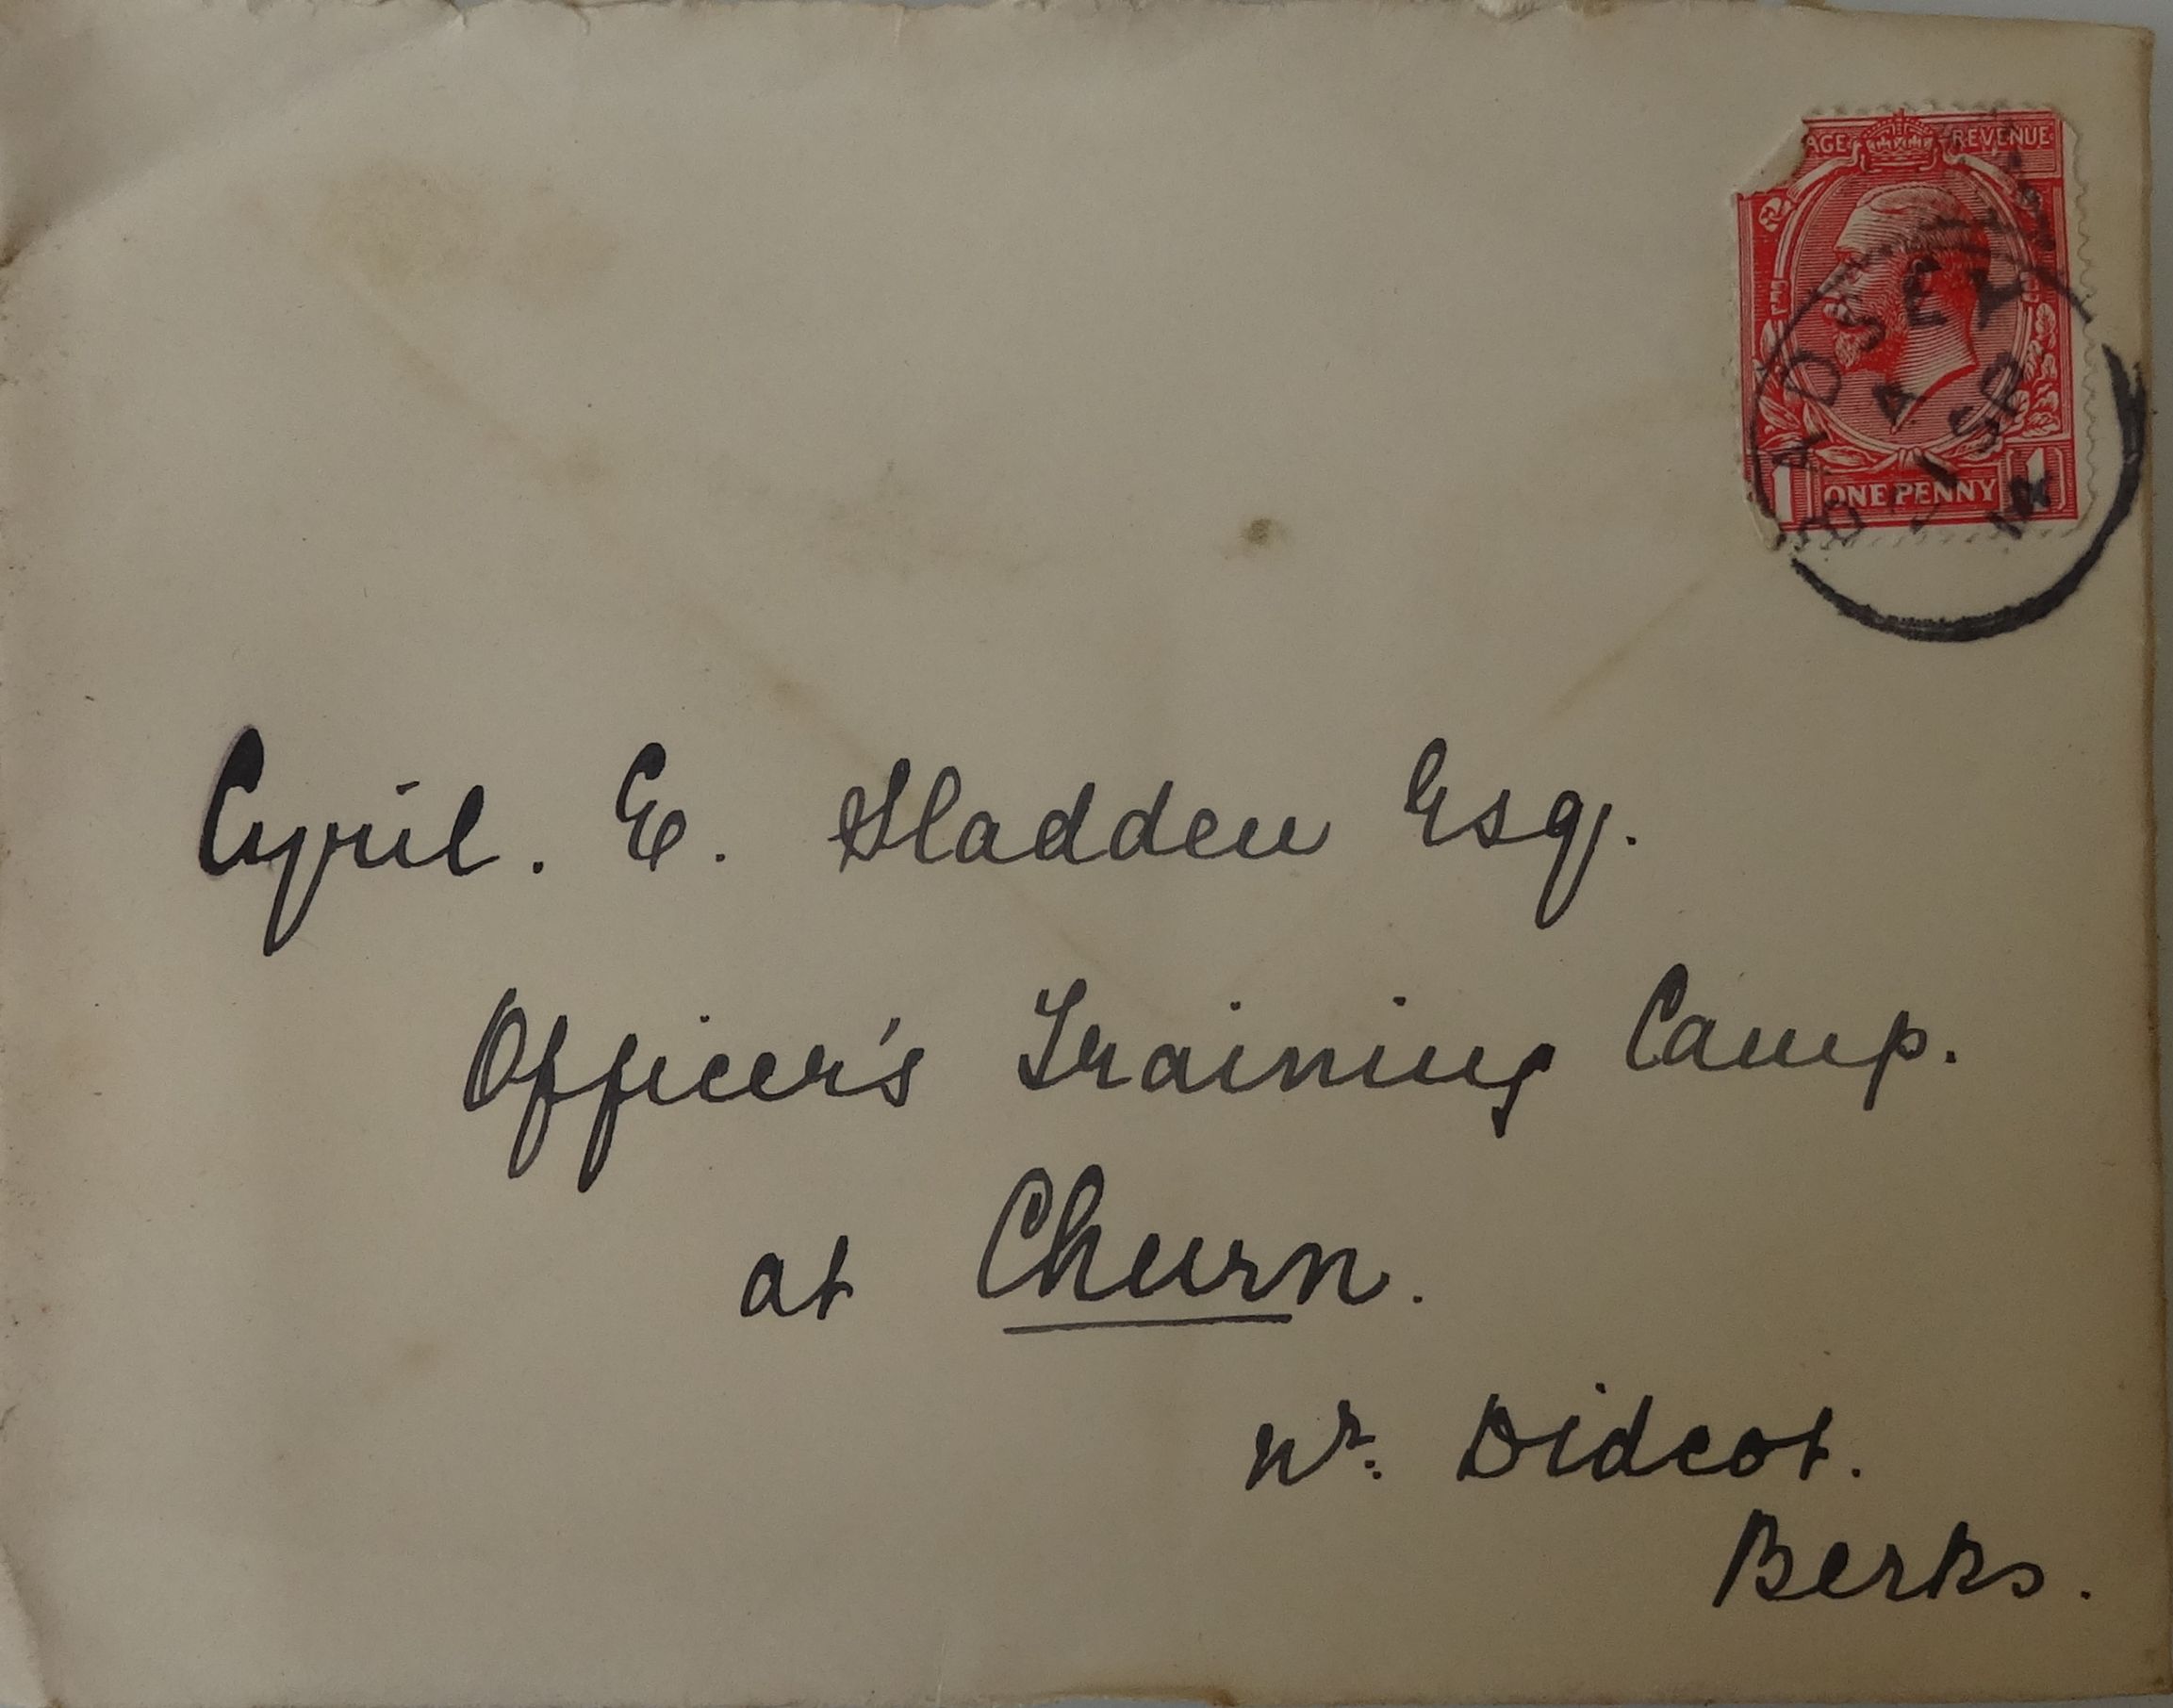 AGE REVENUE
BADSEY
A
SP
14
1 ONE PENNY 1
Cyril. E. Sladden Esq.
Officer's Training Camp.
at Churn.
Nr. Didcot.
Berks.